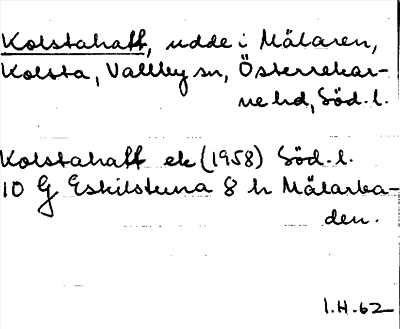 Kolstahatt, udde i Mälaren,
Kolsta, Vallby sn, Österrekar-
ne hd, Söd. l.
Kolstahatt ek (1958) Söd. l.
10 G Eskilstuna 8 h Mälarba-
den.
I.H.-62